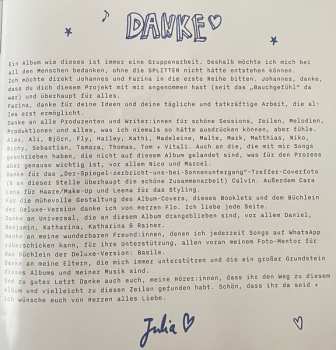 DANKE
Ein Album wie dieses ist immer eine Gruppenarbeit. Deshalb möchte ich mich bei
all den Menschen bedanken, ohne die SPLITTER nicht hätte entstehen können.
Ich möchte direkt Johannes und Farina in die erste Reihe bitten. Johannes, danke,
dass du dich diesem Projekt mit mir angenommen hast (seit das „Bauchgefühl“ da
war) und überhaupt für alles.
Farina, danke für deine Ideen und deine tägliche und tatkräftige Arbeit, die al-
les erst ermöglicht.
Danke an alle Produzenten und Writer:innen für schöne Sessions, Zeilen, Melodien,
Produktionen und alles, was ich niemals so hätte ausdrücken können, aber fühle.
Alex, Ali, Björn, Fly, Hailey, Kathi, Madeleine, Malte, Maik, Matthias, Niko,
Sebastian, Tamara, Thomas, Tom + Vitali. Auch an die, die mit mir Songs
geschrieben haben, die nicht auf diesem Album gelandet sind, was für den Prozess
aber genauso wichtig ist, vor allem Nico und Marcel.
Danke für das „Der-Spiegel-zerbricht-uns-bei-Sonnenuntergang“-Treffer-Coverfoto
(& an dieser Stelle überhaupt die schöne Zusammenarbeit) Calvin. Außerdem Cara
Lena für Haare/Make-Up und Leena für das Styling.
Für die mühevolle Gestaltung des Album-Covers, dieses Booklets und dem Büchlein
der Deluxe-Version danke ich von Herzen Flo. Ich liebe jede Seite.
Danke an Universal, die an diesem Album drangeblieben sind, vor allem Daniel,
Benjamin, Katharina, Katharina & Rainer.
Danke an meine wunderbaren Freund:innen, denen ich jederzeit Songs auf WhatsApp
rüberschicken kann, für ihre Unterstützung, allen voran meinem Foto-Mentor für
das Büchlein der Deluxe-Version: Basile.
Danke an meine Eltern, die mich immer unterstützen und die ein großer Grundstein
dieses Albums und meiner Musik sind.
Und zu guter Letzt Danke auch euch, meine Hörer:innen, dass ihr den Weg zu diesem
Album und vielleicht zu diesen Zeilen gefunden habt. Schön, dass ihr da seid +
ich wünsche euch von Herzen alles Liebe.
Julia